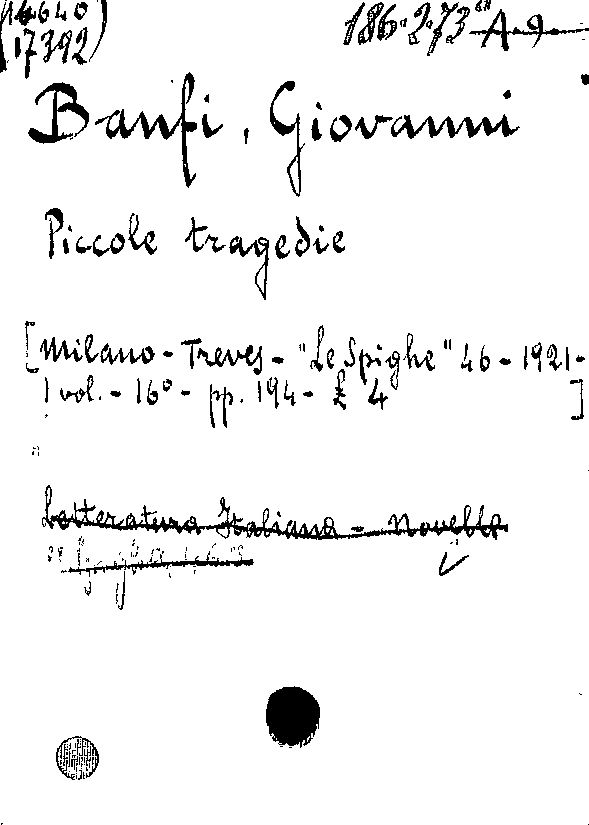 (14640
17392)
186.2.73 A.9.
Banfi, Giovanni
Piccole tragedie
[Milano - Treves - "Le Spighe" 46 - 1921 -
1 vol. - 16° - pp. 194 - £ 4 ]
Letteratura Italiana - Novelle